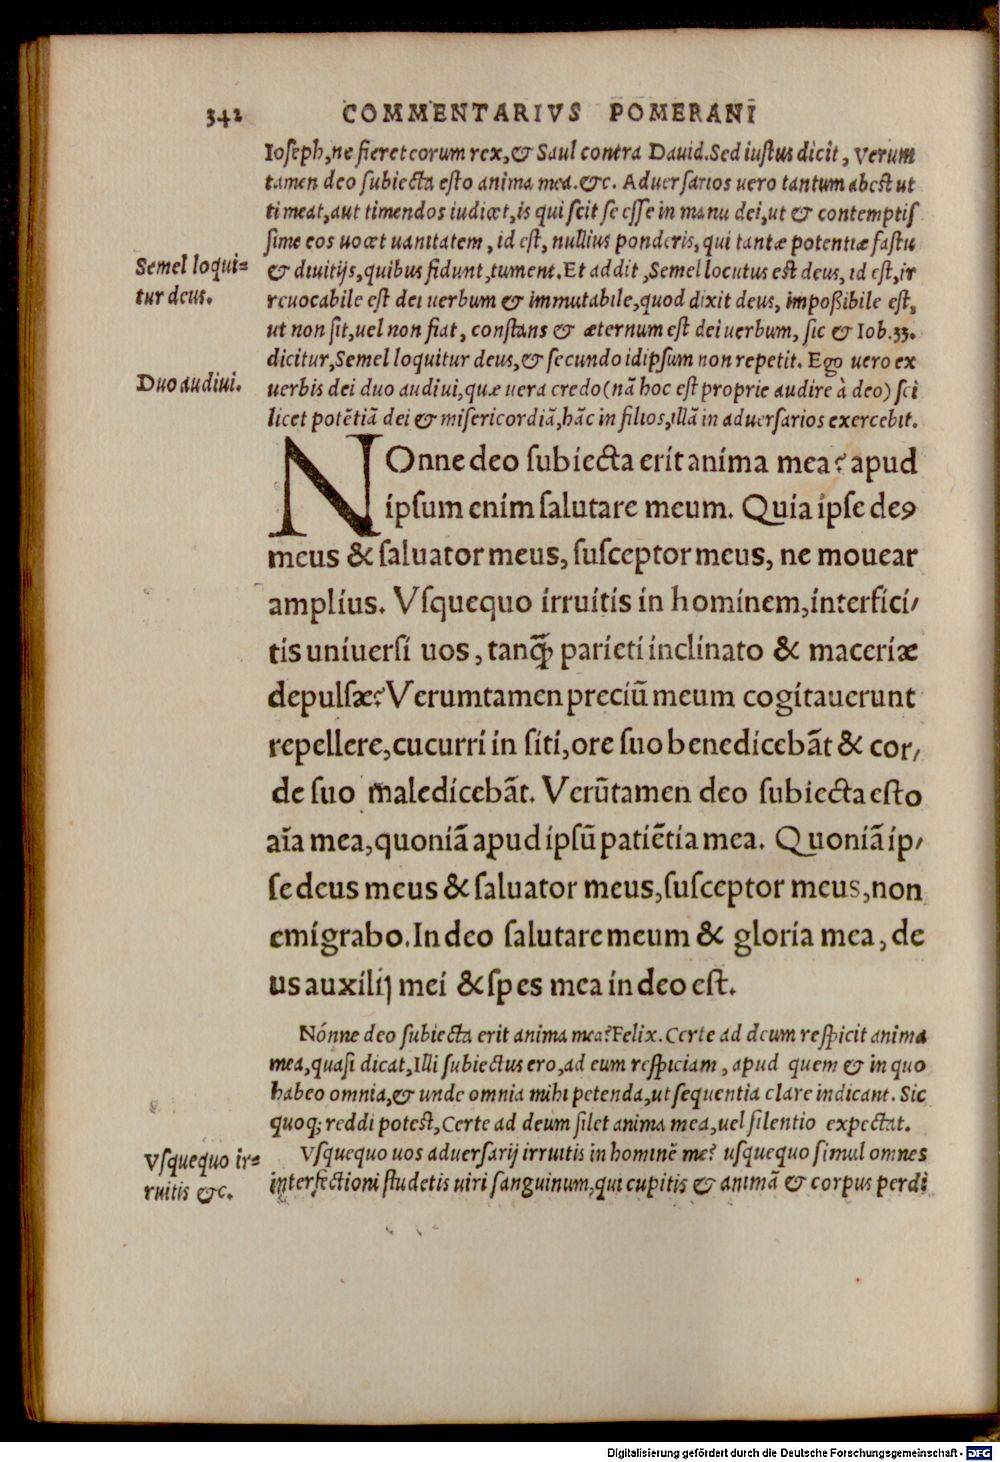 342 COMMENTARIVS POMERANI
Ioseph, ne fieret eorum rex, & Saul contra Dauid. Sed iuſtus dicit, Verum
tamen deo ſubiecta eſto anima mea. &c. Aduerſarios uero tantum abeſt ut
timeat, aut timendos iudicet, is qui ſcit ſe eſſe in manu dei, ut & contemptiſ
ſime eos uocet uanitatem, id eſt, nullius ponderis, qui tantæ potentiæ faſtu
& diuitijs, quibus fidunt, tument. Et addit, Semel locutus eſt deus, id eſt, ir
reuocabile eſt dei uerbum & immutabile, quod dixit deus, impoßibile eſt,
ut non ſit, uel non fiat, conſtans & æternum eſt dei uerbum, ſic & Iob. 33.
dicitur, Semel loquitur deus, & ſecundo idipſum non repetit. Ego uero ex
uerbis dei duo audiui, quæ uera credo (nã hoc eſt proprie audire à deo) ſci
licet potẽtiã dei & miſericordiã, hãc in filios, illã in aduerſarios exercebit.
Semel loqui⸗
tur deus.
Duo audiui.
NOnne deo ſubiecta erit anima mea? apud
ipſum enim ſalutare meum. Quia ipſe deꝰ
meus & ſaluator meus, ſuſceptor meus, ne mouear
amplius. Vſquequo irruitis in hominem, interfici/
tis uniuerſi uos, tanꝙ̃ parieti inclinato & maceriæ
depulſæ? Verumtamen preciũ meum cogitauerunt
repellere, cucurri in ſiti, ore ſuo benedicebãt & cor/
de ſuo maledicebãt. Verũtamen deo ſubiecta eſto
aĩa mea, quoniã apud ipſũ patiẽtia mea. Quoniã ip/
ſe deus meus & ſaluator meus, ſuſceptor meus, non
emigrabo. In deo ſalutare meum & gloria mea, de
us auxilij mei & ſpes mea in deo eſt.
Nónne deo ſubiecta erit anima mea? Felix. Certe ad deum reſpicit anima
mea, quaſi dicat, Illi ſubiectus ero, ad eum reſpiciam, apud quem & in quo
habeo omnia, & unde omnia mihi petenda, ut ſequentia clare indicant. Sic
quoq; reddi poteſt, Certe ad deum ſilet anima mea, uel ſilentio expectat.
Vſquequo uos aduerſarij irruitis in hominẽ me? uſquequo ſimul omnes
interfectioni ſtudetis uiri ſanguinum, qui cupitis & animã & corpus perdi
Vſquequo ir⸗
ruitis &c.
Digitalisierung gefördert durch die Deutsche Forschungsgemeinschaft - DFG